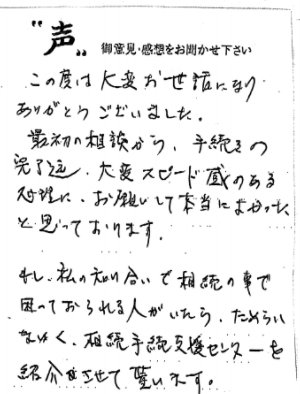 “声”
御意見・感想をお聞かせ下さい
この度は大変お世話になり
ありがとうございました。
最初の相談から、手続きの
完了迄、大変スピード感のある
対理に、お願いして本当によかった
と思っております。
もし、私の知り合いで相続の事で
困っておられる人がいたら、ためらい
なく、相続手続支援センターを
紹介させて貰います。